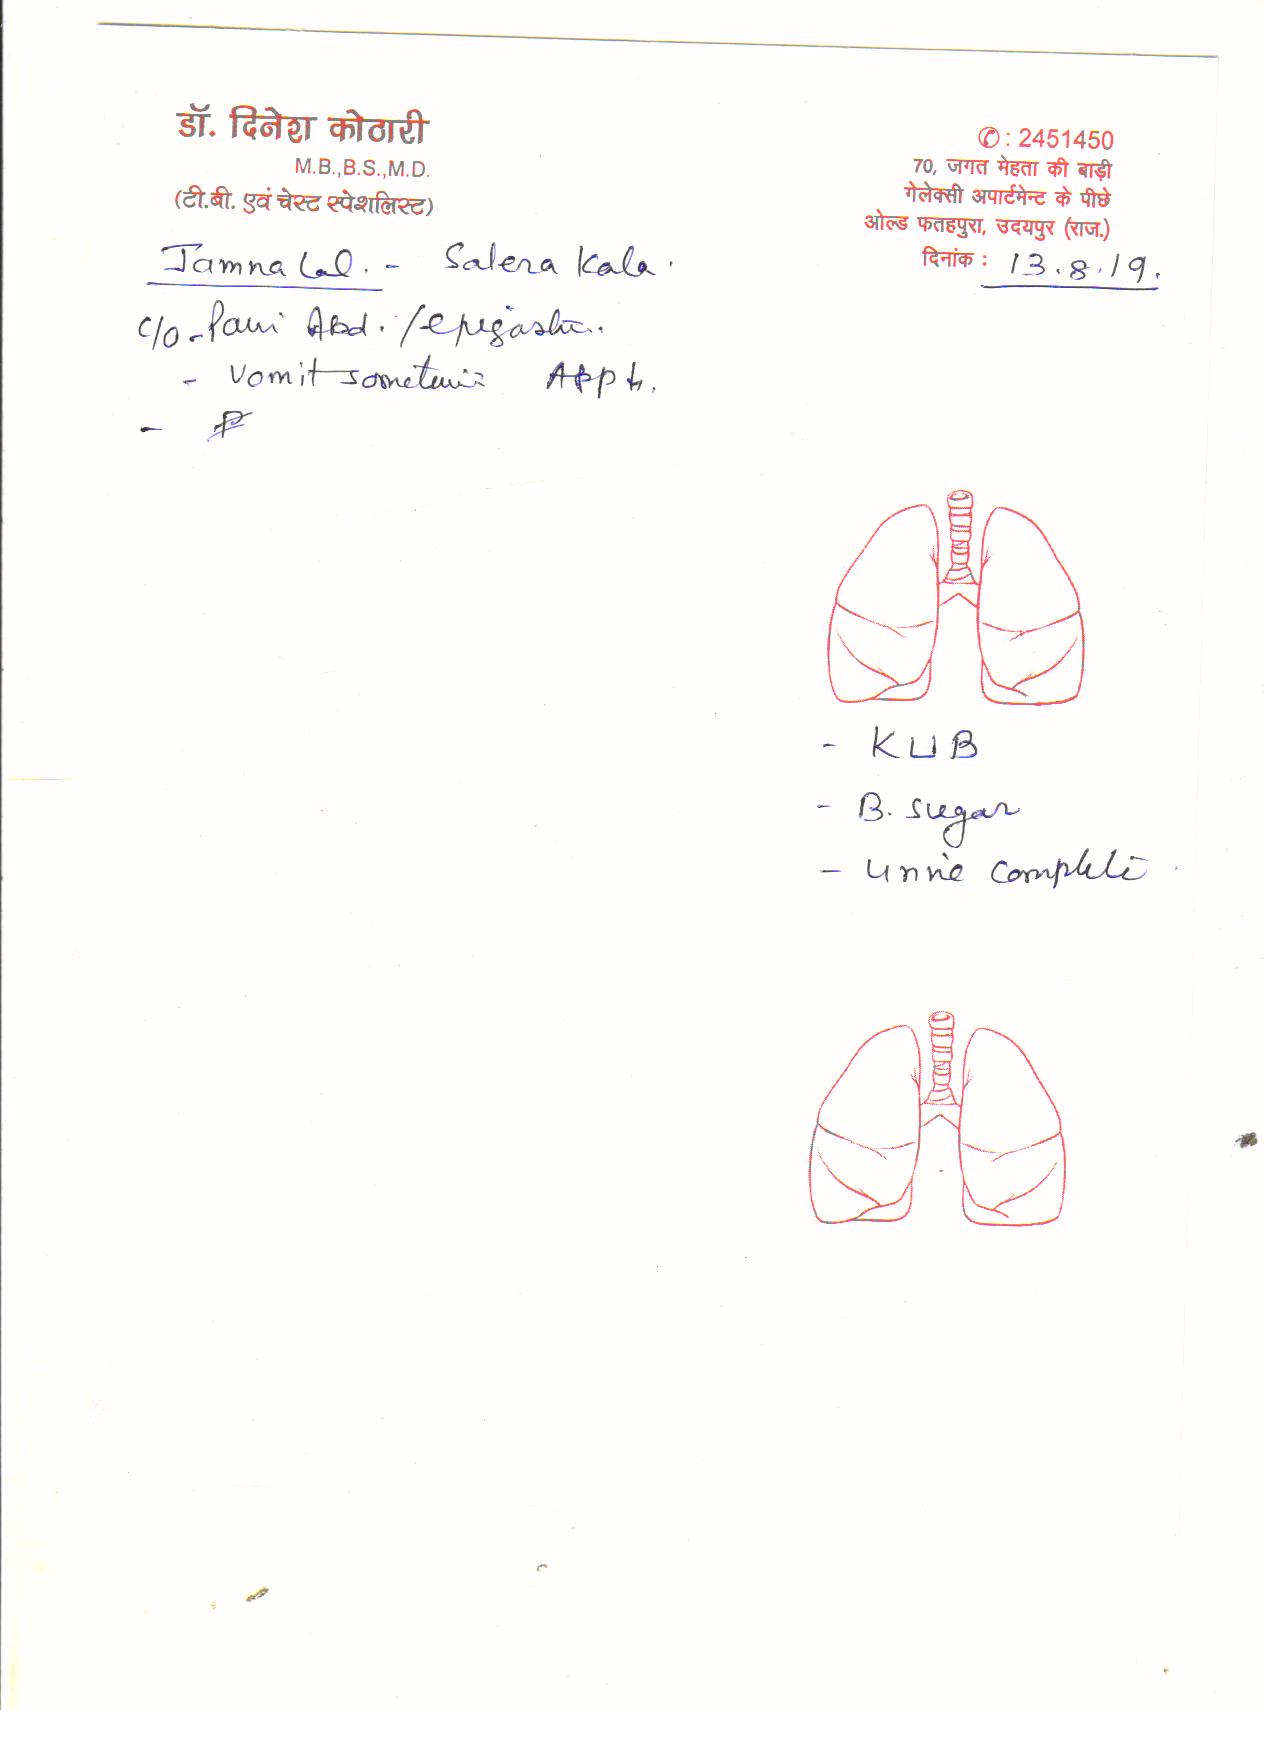 डॉ. दिनेश कोठारी
M.B.,B.S.,M.D.
(टी.बी. एवं चेस्ट स्पेशलिस्ट)
✆ : 2451450
70, जगत मेहता की बाड़ी
गेलेक्सी अपार्टमेन्ट के पीछे
ओल्ड फतहपुरा, उदयपुर (राज.)
दिनांक : 13.8.19.
Jamna Lal. - Salera Kala.
c/o - Pain Abd. / epigastri.
- Vomit sometimes App
-
- KUB
- B. Sugar
- Urine Complete